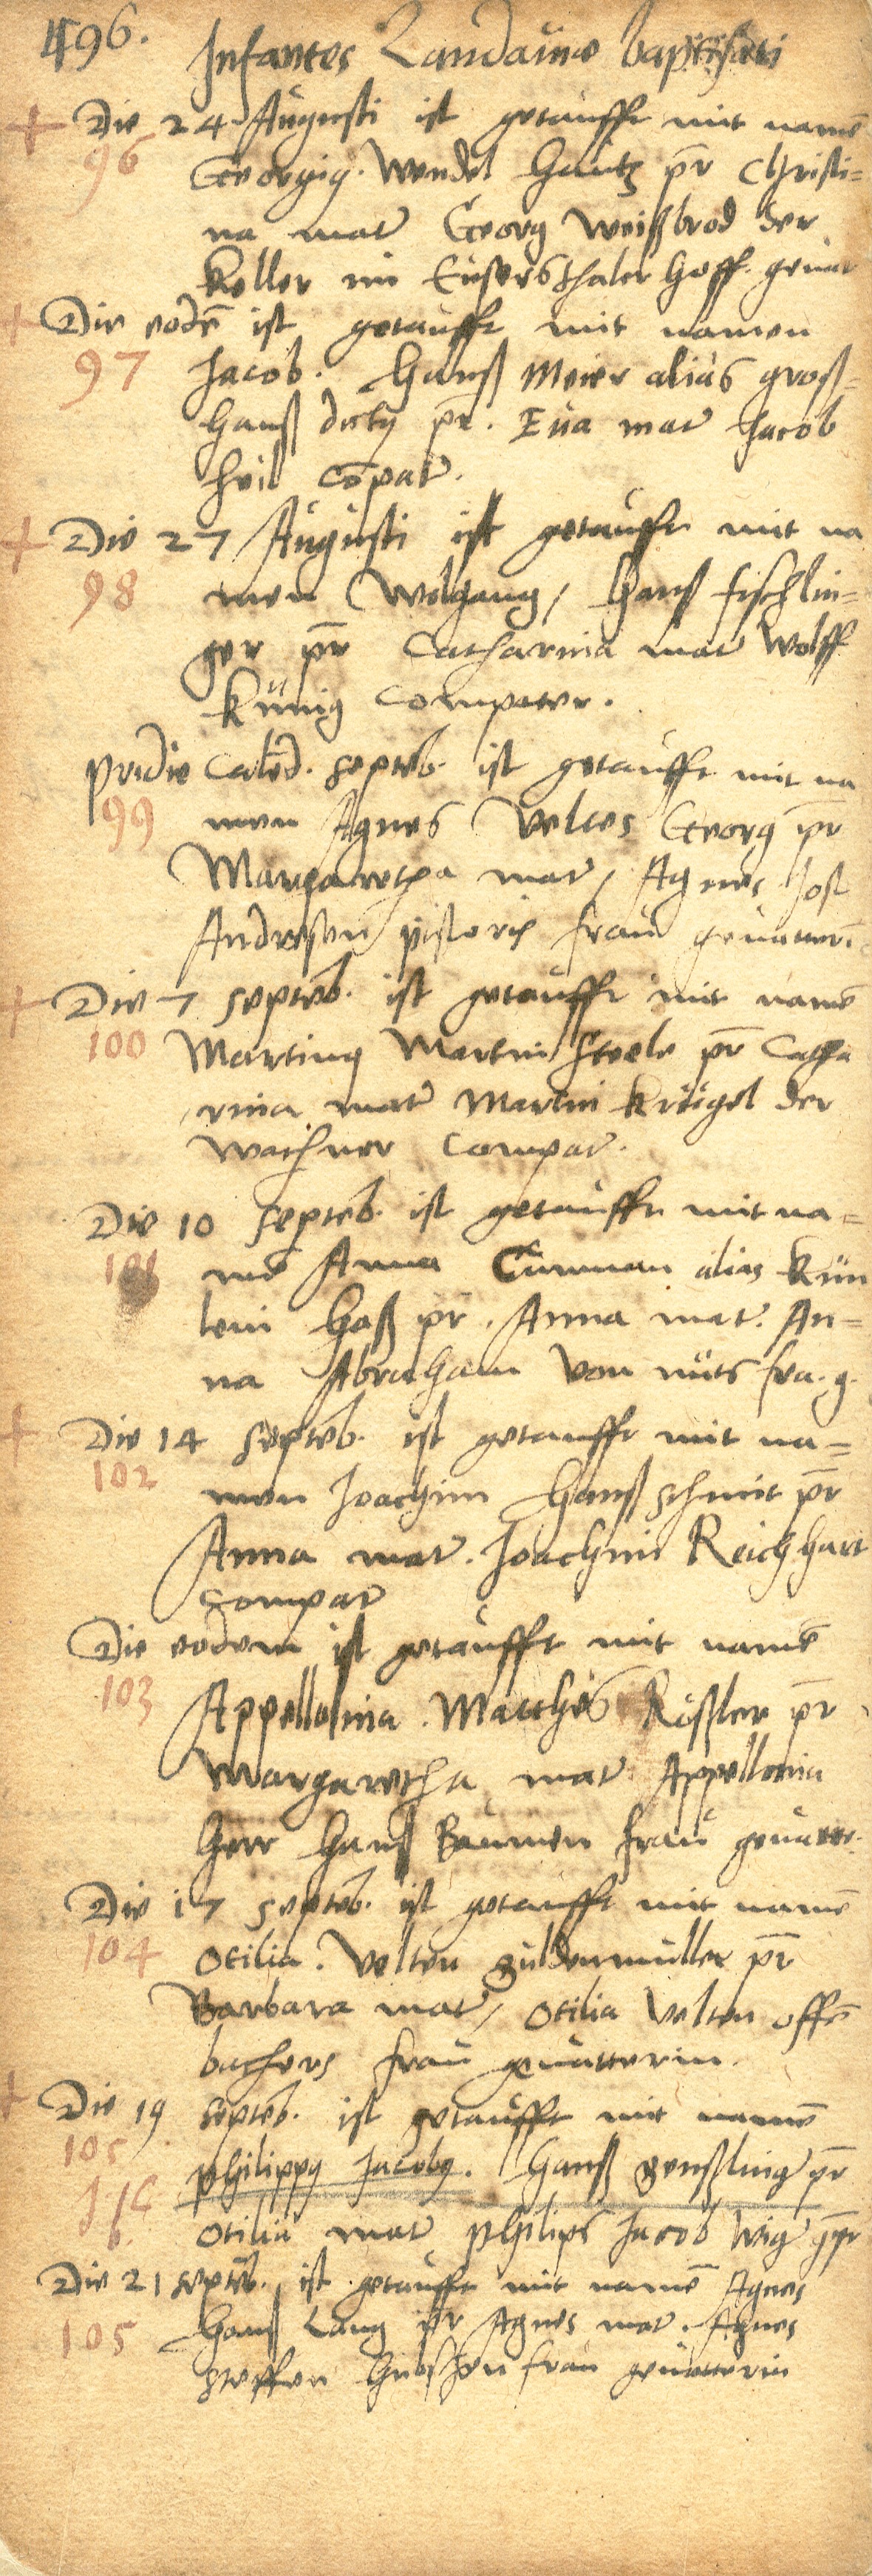 496.
Infantes Landauiae baptisati
Die 24 Augusti ist getaufft mit namē
96
Georgiꝰ. Wendel Hantz pr̄ Christi-
na mat Georg Weißbrod der
Keller im Eusersthaler Hoff. geuat
Die eodē ist getaufft mit namen
97
Jacob. Hanß Meier alias groß-
hanß dictꝰ pr̄. Eua mat Jacob
Heil Cōpat.
Die 27 Augusti ist getaufft mit na
98
men Wolgang, Hans Fischlin-
ger pr̄ Catharina mat Wolff
Künig Compater.
Pridie Calēd. Septēb. ist getaufft mit na
99
men Agnes Veltes Georg pr̄
Margaretha mat, Agnes Jost
Andresen pistoris frau geuatteri
Die 7 Septēb. ist getaufft mit namē
100
Martinꝰ Martin Steele pr̄ Catha
rina mat Martin Krügel der
Compat.
Die 10 Septēb. ist getaufft mit na-
101
mē Anna Cunman alias Kün
lein Haß pr̄. Anna mat. An-
na Abraham von fra. g.
Die 14 Septēb. ist getaufft mit na-
102
men Joachim Hanß Schmit pr̄
Anna mat. Joachim Reichhart
Compat
Die eodem ist getaufft mit namē
103
Appellolnia. Matthes Rößler pr̄
Margaretha mat Appellonia
Herr Hanß Baumen frau geuatt.
Die 17 Septēb. ist getaufft mit namē
104
Otilia. Velten güldenmüller pr̄
Barbara mat, Otilia Velten offē
bachers frau geuatterin.
Die 19 Septēb. ist getaufft mit namē
105
Philippꝰ Jacobꝰ. Hanß genßling pr̄
b.
Otilia mat Philips Jacob Wig
Die 21 Septēb. ist getaufft mit namē Agnes
105
Hanß Lang pr̄ Agnes mat. Agnes
Steffen frau geuatterin